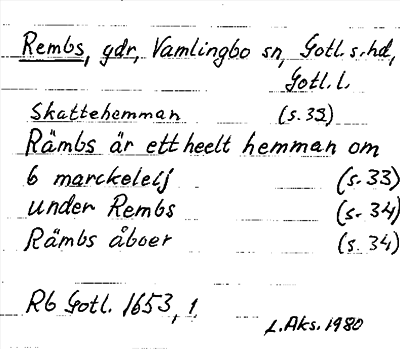 Rembs, gdr, Vamlingbo sn, Gotl. s. hd,
Gotl. l.
Skattehemman (s. 33)
Rämbs är ett heelt hemman om
6 marckeleij (s. 33)
under Rembs (s. 34)
Rämbs åboer (s. 34)
Rb Gotl. 1653, 1
L. Aks. 1980